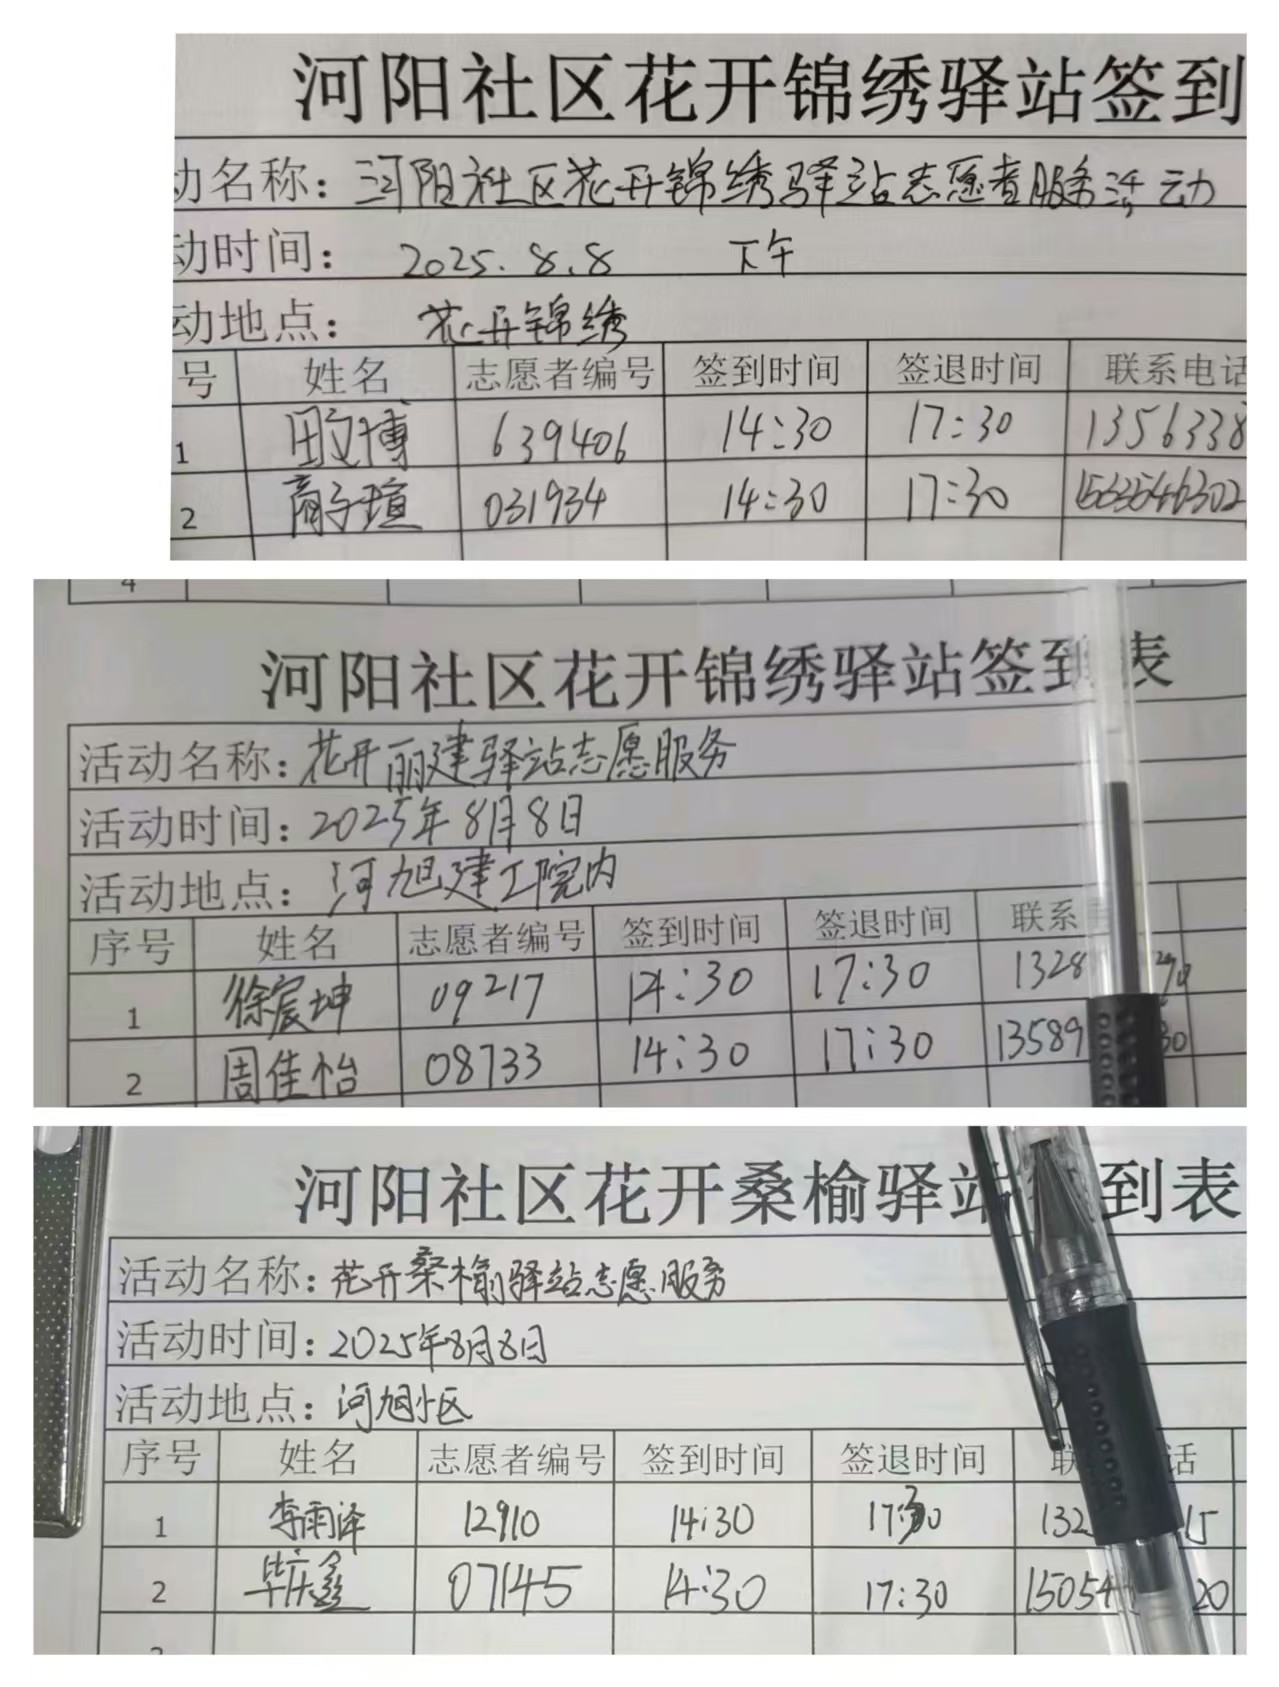 河阳社区花开锦绣驿站签到
动名称：河阳社区花开锦绣驿站志愿者服务活动
动时间： 2025.8.8 下午
动地点： 花开锦绣
号 姓名 志愿者编号 签到时间 签退时间 联系电话
1 田文博 639406 14:30 17:30 1356338
2 商子瑄 031934 14:30 17:30 15635546302
4
河阳社区花开锦绣驿站签到表
活动名称：花开丽建驿站志愿服务
活动时间：2025年8月8日
活动地点：河旭建工院内
序号 姓名 志愿者编号 签到时间 签退时间 联系
1 徐宸坤 09217 14:30 17:30 1328
2 周佳怡 08733 14:30 17:30 13589 30
河阳社区花开桑榆驿站 到表
活动名称：花开桑榆驿站志愿服务
活动时间：2025年8月8日
活动地点：河旭小区
序号 姓名 志愿者编号 签到时间 签退时间 联 话
1 李雨泽 12910 14:30 17:30 132 15
2 毕庆鑫 07145 14:30 17:30 15054 20